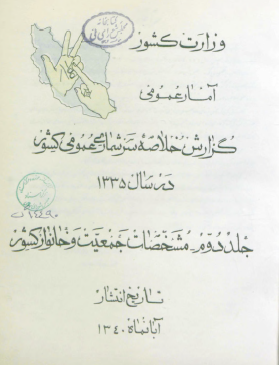 وزارت کشور
آمار عمومی
گزارش خلاصه سرشماری عمومی کشور
در سال ۱۳۳۵
جلد دوم - مشخصات جمعیت و خانوار کشور
تاریخ انتشار
آبانماه ۱۳۴۰